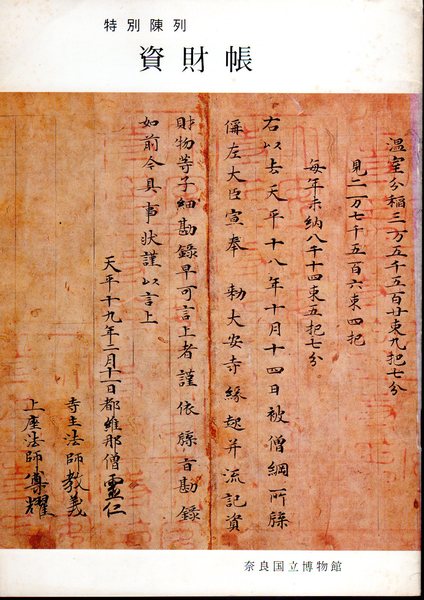 特別陳列
資財帳
温室分稲三万五千五百廿束九把七分
見二万七千五百六束四把
毎年未納八千十四束五把七分
右以去天平十八年十月十四日被僧綱所牒
偁左大臣宣奉 勅大安寺縁起并流記資
財物等子細勘録早可言上者謹依牒旨勘録
如前今具事状謹以言上
天平十九年二月十一日都維那僧霊仁
寺主法師教義
上座法師尊耀
奈良国立博物館